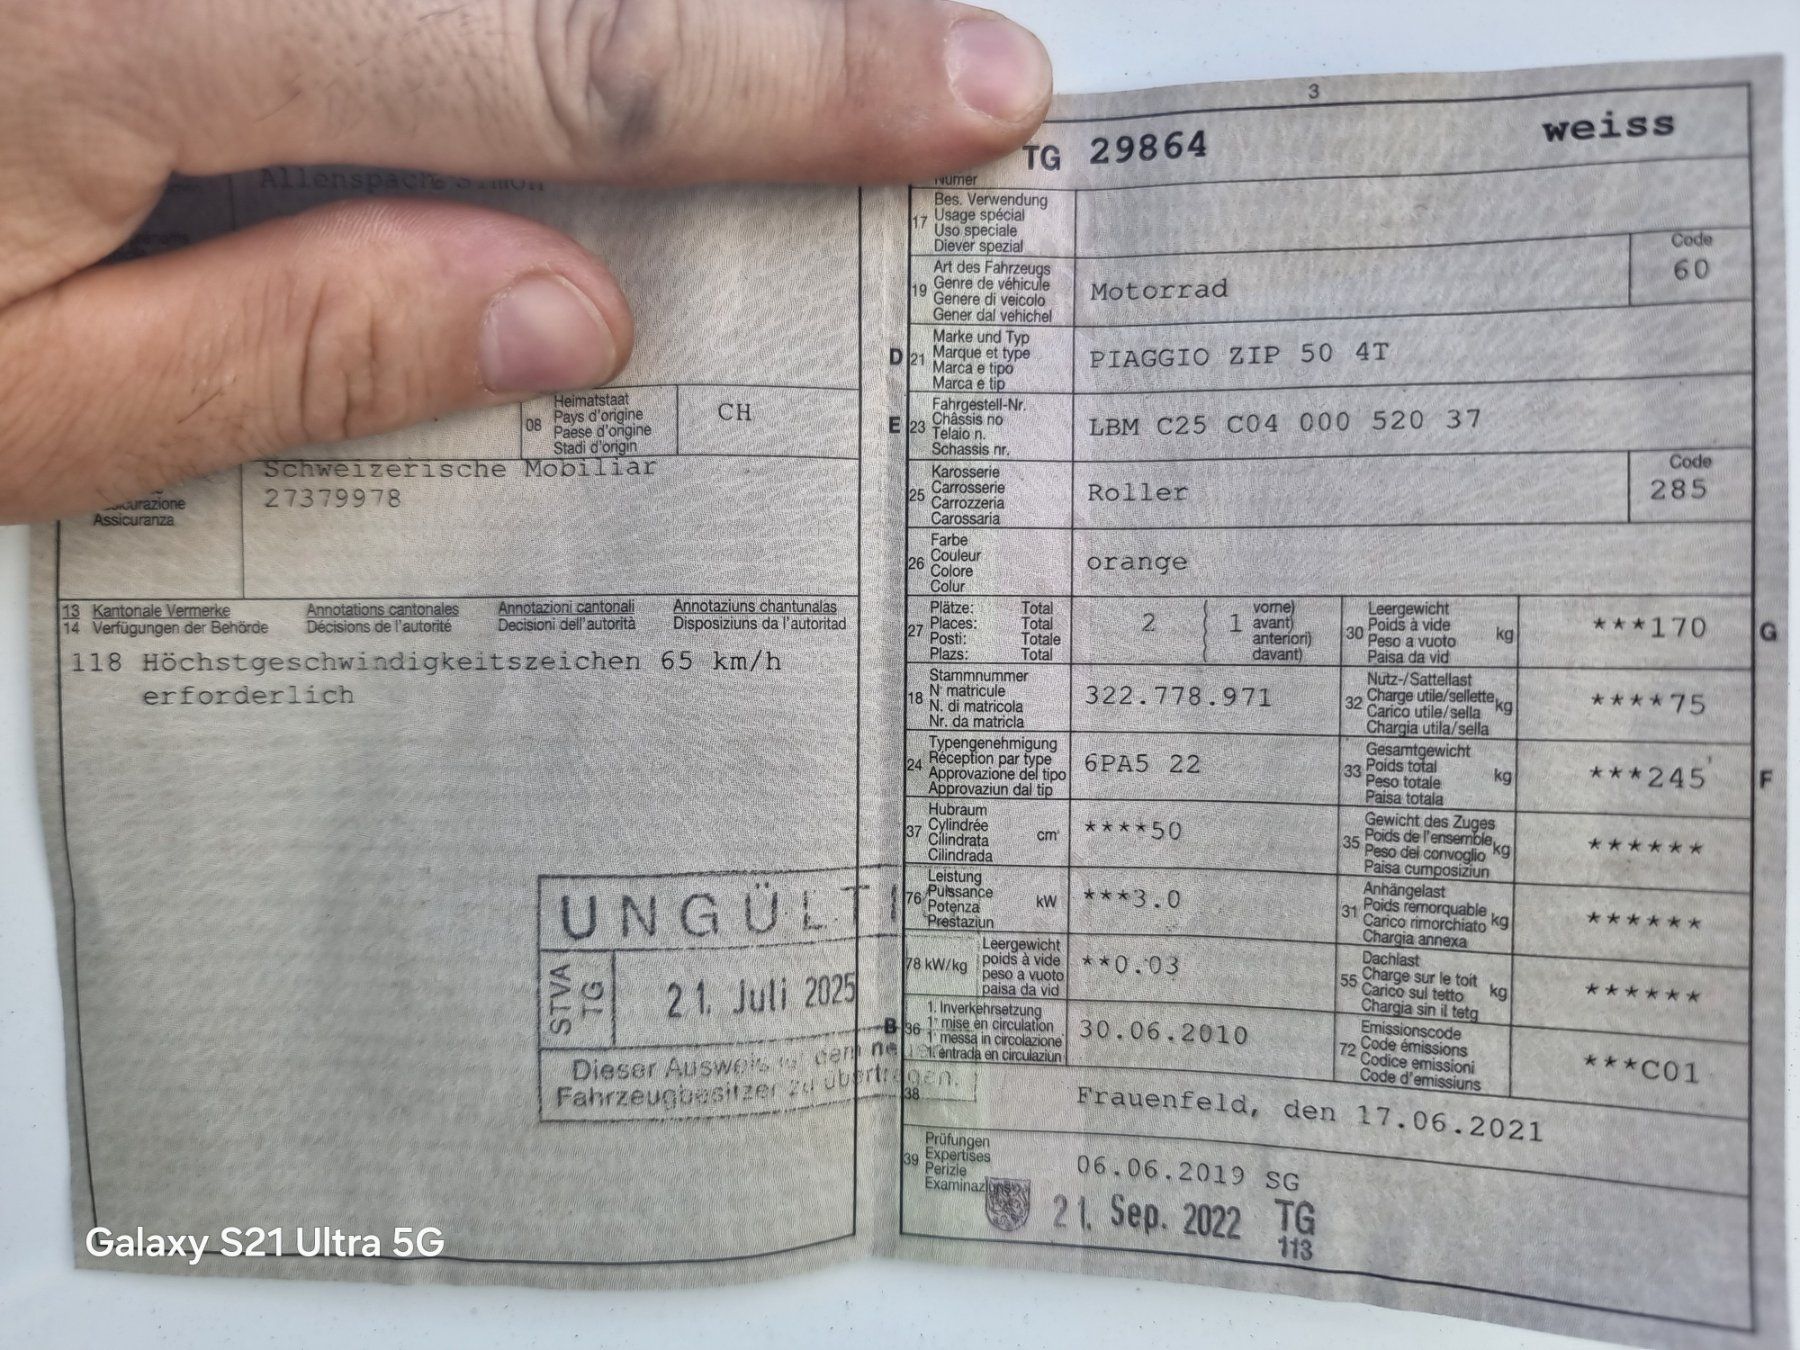 Allenspach Simon
08
Heimatstaat
Pays d'origine
Paese d'origine
Stadi d'origin
CH
Schweizerische Mobiliar
27379978
Assicuranza
13 Kantonale Vermerke Annotations cantonales Annotazioni cantonali Annotaziuns chantunalas
14 Verfügungen der Behörde Décisions de l'autorité Decisioni dell'autorità Disposiziuns da l'autoritad
118 Höchstgeschwindigkeitszeichen 65 km/h
erforderlich
UNGÜLTI
STVA
TG
21. Juli 2025
Dieser Ausweis ist dem
Fahrzeugbesitzer zu übertragen.
3
TG 29864 weiss
Numer
17
Bes. Verwendung
Usage spécial
Uso speciale
Diever spezial
19
Art des Fahrzeugs
Genre de véhicule
Genere di veicolo
Gener dal vehichel
Motorrad
Code
60
D 21
Marke und Typ
Marque et type
Marca e tipo
Marca e tip
PIAGGIO ZIP 50 4T
E 23
Fahrgestell-Nr.
Châssis no
Telaio n.
Schassis nr.
LBM C25 C04 000 520 37
25
Karosserie
Carrosserie
Carrozzeria
Carossaria
Roller
Code
285
26
Farbe
Couleur
Colore
Colur
orange
27
Plätze: Total
Places: Total
Posti: Totale
Plazs: Total
2
1
vorne)
avant)
anteriori)
davant)
30
Leergewicht
Poids à vide
Peso a vuoto
Paisa da vid
kg
***170
G
18
Stammnummer
N° matricule
N. di matricola
Nr. da matricla
322.778.971
32
Nutz-/Sattellast
Charge utile/sellette
Carico utile/sella
Chargia utila/sella
kg
****75
24
Typengenehmigung
Réception par type
Approvazione del tipo
Approvaziun dal tip
6PA5 22
33
Gesamtgewicht
Poids total
Peso totale
Paisa totala
kg
***245
F
37
Hubraum
Cylindrée
Cilindrata
Cilindrada
cm³
****50
35
Gewicht des Zuges
Poids de l'ensemble
Peso del convoglio
Paisa cumposiziun
kg
******
76
Leistung
Puissance
Potenza
Prestaziun
kW
***3.0
31
Anhängelast
Poids remorquable
Carico rimorchiato
Chargia annexa
kg
******
78 kW/kg
Leergewicht
poids à vide
peso a vuoto
paisa da vid
**0.03
55
Dachlast
Charge sur le toit
Carico sul tetto
Chargia sin il tetg
kg
******
B 36
1. Inverkehrsetzung
1re mise en circulation
1a messa in circolazione
1. entrada en circulaziun
30.06.2010
72
Emissionscode
Code émissions
Codice emissioni
Code d'emissiuns
***C01
38
Frauenfeld, den 17.06.2021
39
Prüfungen
Expertises
Perizie
Examinaziuns
06.06.2019 SG
21. Sep. 2022 TG
113
Galaxy S21 Ultra 5G